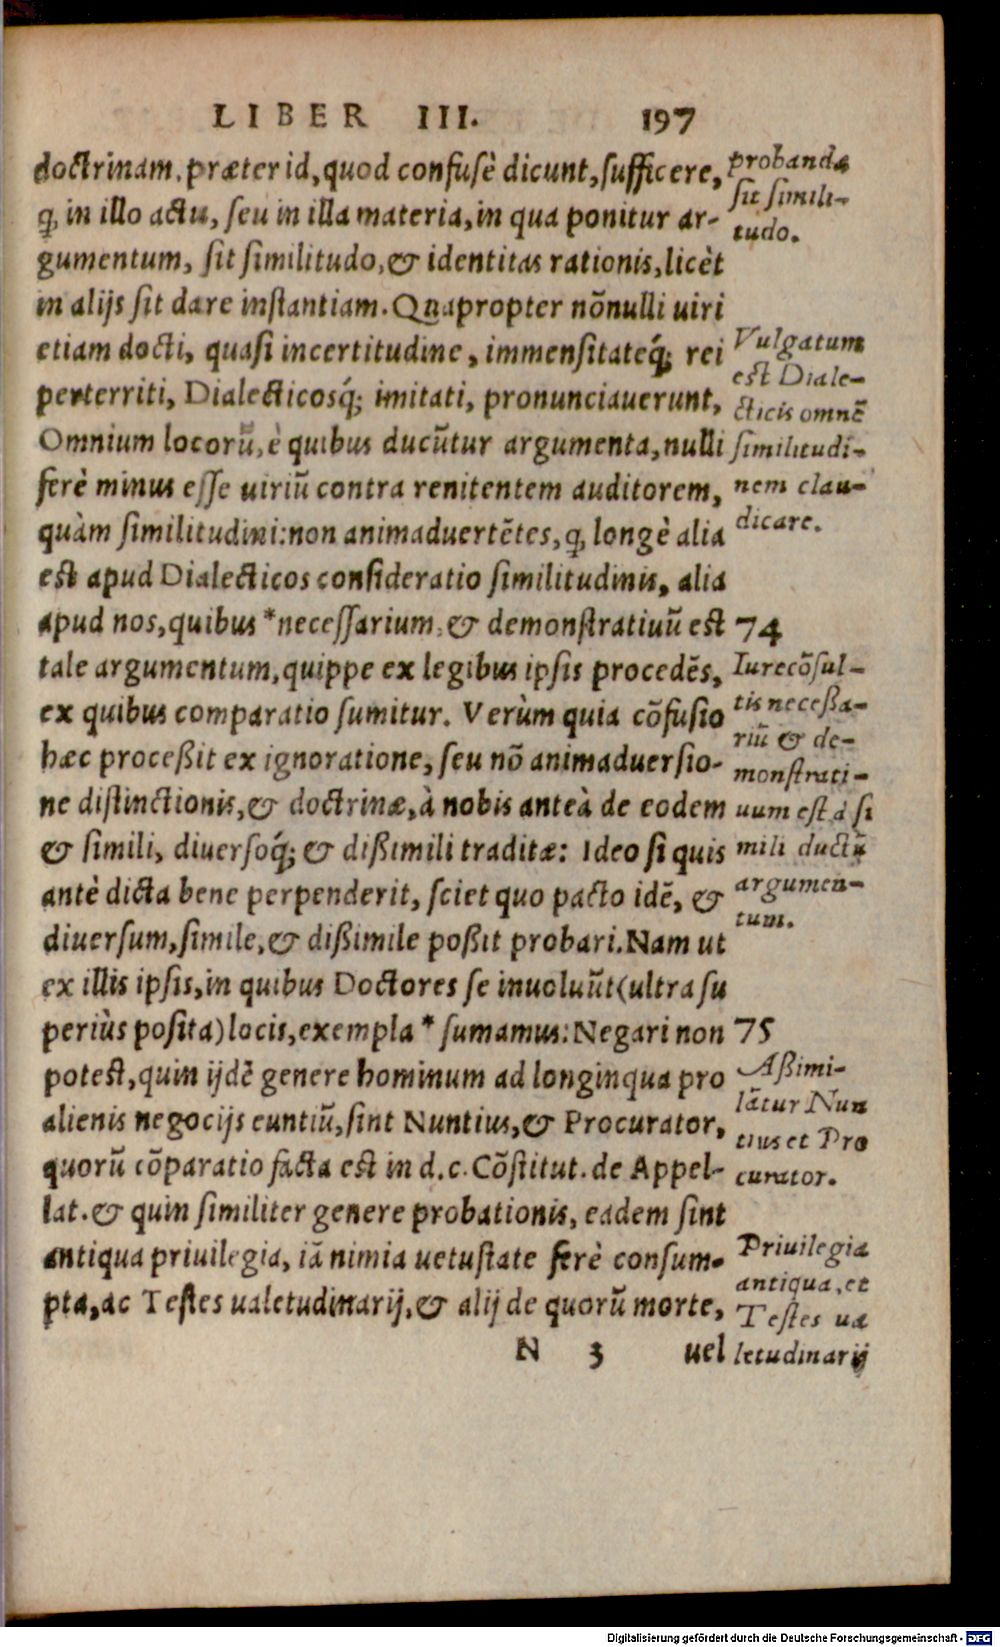 LIBER III. 197
doctrinam, præter id, quod confusè dicunt, sufficere,
ꝙ in illo actu, seu in illa materia, in qua ponitur ar-
gumentum, sit similitudo, & identitas rationis, licèt
in alijs sit dare instantiam. Quapropter nōnulli uiri
etiam docti, quasi incertitudine, immensitateq́; rei
perterriti, Dialecticosq́; imitati, pronunciauerunt,
Omnium locorū, è quibus ducūtur argumenta, nulli
ferè minus esse uiriū contra renitentem auditorem,
quàm similitudini: non animaduertētes, ꝙ longè alia
est apud Dialecticos consideratio similitudinis, alia
apud nos, quibus * necessarium, & demonstratiuū est
tale argumentum, quippe ex legibus ipsis procedēs,
ex quibus comparatio sumitur. Verùm quia cōfusio
hæc proceßit ex ignoratione, seu nō animaduersio-
ne distinctionis, & doctrinæ, à nobis anteà de eodem
& simili, diuersoq́; & dißimili traditæ: Ideo si quis
antè dicta bene perpenderit, sciet quo pacto idē, &
diuersum, simile, & dißimile poßit probari. Nam ut
ex illis ipsis, in quibus Doctores se inuoluūt (ultra su
periùs posita) locis, exempla * sumamus: Negari non
potest, quin ijdē genere hominum ad longinqua pro
alienis negocijs euntiū, sint Nuntius, & Procurator,
quorū cōparatio facta est in d. c. Cōstitut. de Appel-
lat. & quin similiter genere probationis, eadem sint
antiqua priuilegia, iā nimia uetustate ferè consum-
pta, ac Testes ualetudinarij, & alij de quorū morte,
N 3 uel
probanda
sit simili-
tudo.
Vulgatum
est Diale-
cticis omnē
similitudi-
nem clau-
dicare.
74
Iurecōsul-
tis neceßa-
riū & de-
monstrati-
uum est à si
mili ductū
argumen-
tum.
75
Aßimi-
lātur Nun
tius et Pro
curator.
Priuilegia
antiqua, et
Testes ua
letudinarij
Digitalisierung gefördert durch die Deutsche Forschungsgemeinschaft - DFG